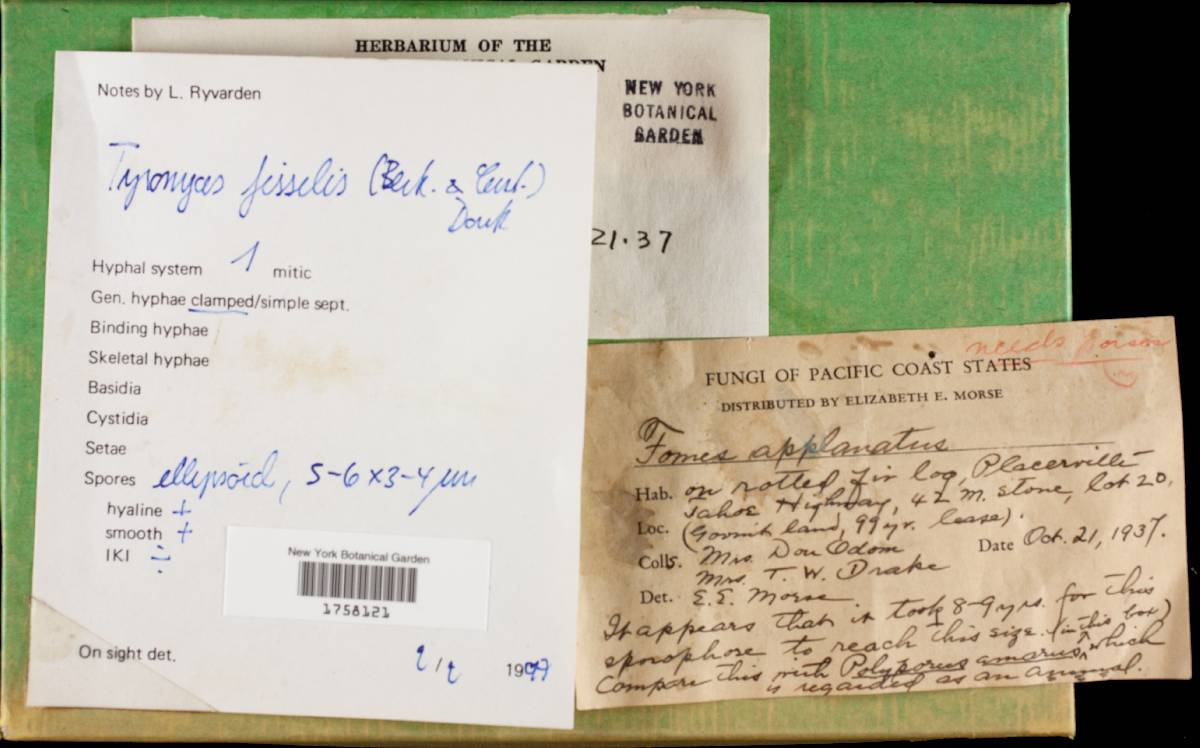 HERBARIUM OF THE
GARDEN
NEW YORK
BOTANICAL
GARDEN
21.37
Notes by L. Ryvarden
Tyromyces fissilis (Berk. & Curt.)
Donk
Hyphal system 1 mitic
Gen. hyphae clamped/simple sept.
Binding hyphae
Skeletal hyphae
Basidia
Cystidia
Setae
Spores ellipsoid, 5-6 x 3-4 µm
hyaline +
smooth +
IKI ÷
New York Botanical Garden
1758121
On sight det.
1977
needs poison
FUNGI OF PACIFIC COAST STATES
DISTRIBUTED BY ELIZABETH E. MORSE
Fomes applanatus
Hab. on rotted fir log, Placerville-
Tahoe Highway, 42 M. stone, lot 20,
Loc. (Govmnt land, 99 yr. lease).
Colls. Mrs. Don Odom Date Oct. 21, 1937.
Mrs. T. W. Drake
Det. E.E. Morse.
It appears that it took 8-9 yrs. for this
sporophore to reach this size. (in this box)
Compare this with Polyporus amarus, which
is regarded as an annual.